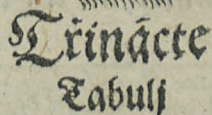 Třináctc
Tabulj